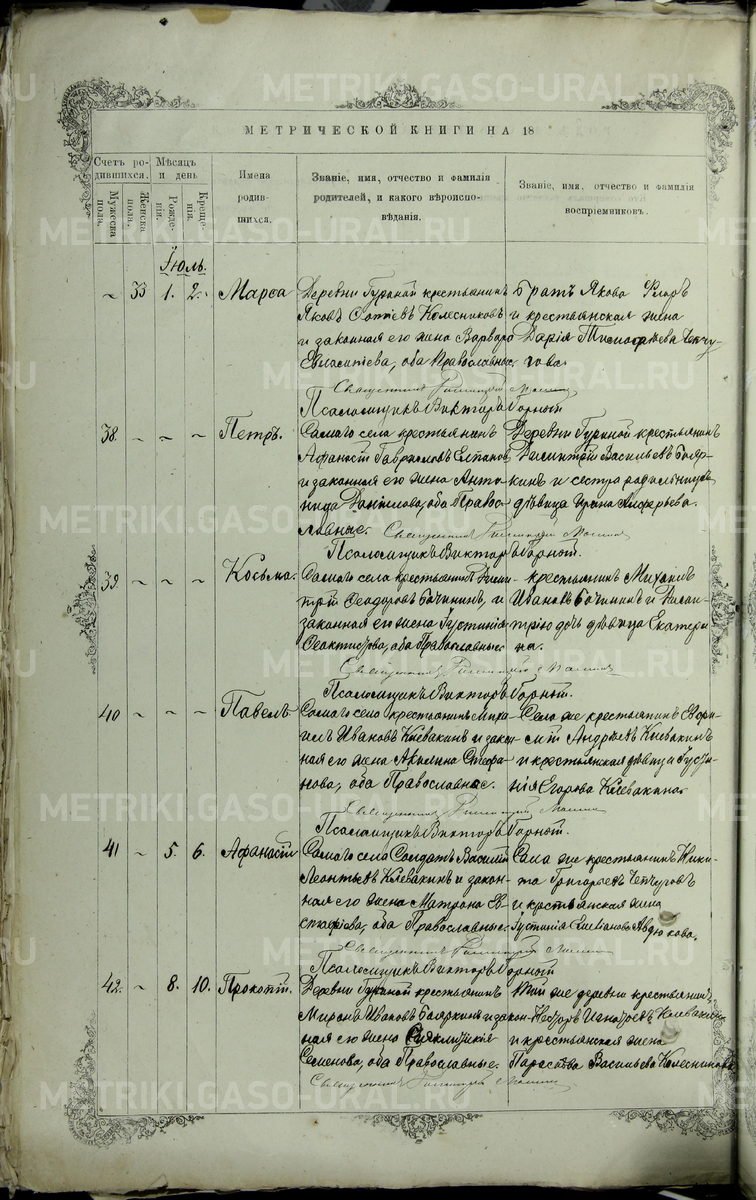 МЕТРИЧЕСКОЙ КНИГИ НА 18
Счетъ ро-
дившихся.
Мужеска
пола.
Женска
пола.
Мѣсяцъ
и день
Рожде-
нія.
Креще-
нія.
Имена
родив-
шихся.
Званіе, имя, отчество и фамилія
родителей, и какого вѣроиспо-
вѣданія.
Званіе, имя, отчество и фамилія
воспріемниковъ.
Іюль.
~ 33 1. 2. Марѳа
Деревни Гуриной крестьянинъ
Яковъ Колесниковъ
и законная его жена Варвара
оба Православные.
братъ Якова Флоръ
и крестьянская жена
Дарія Тимофѣева Чепчу-
гова.
Священникъ
Псаломщикъ Викторъ Горный
38. ~ ~ ~ Петръ.
Самаго села крестьянинъ
Афанасій Гавриловъ
и законная его жена Анто-
нида Данилова, оба Право-
славные.
Деревни Гуриной крестьянинъ
Димитрій Васильевъ Бояр-
кинъ и сестра родильницы
дѣвица Ирина Алферьева.
Священникъ
Псаломщикъ Викторъ Горный.
39. ~ ~ ~ Косьма.
Самаго села крестьянинъ Дими-
трій Ѳеодоровъ Бачининъ, и
законная его жена Густинія
Ѳеоктистова, оба Православные
крестьянинъ Михаилъ
Ивановъ Бачининъ и Дими-
трія дочь дѣвица Екатери-
на.
Священникъ
Псаломщикъ Викторъ Горный.
40 ~ ~ ~ Павелъ.
Самаго села крестьянинъ Миха-
илъ Ивановъ Клевакинъ и закон-
ная его жена Акилина Стефа-
нова, оба Православные.
Села же крестьянинъ
Андреевъ Клевакинъ
и крестьянская дѣвица Густи-
нія Егорова Клевакина.
Священникъ
Псаломщикъ Викторъ Горный.
41 ~ 5. 6. Афанасій
Самаго села Солдатъ Василій
Леонтьевъ Клевакинъ и закон-
ная его жена Матрона Ев-
стафіева, оба Православные.
Села же крестьянинъ Ники-
та Григорьевъ Чепчуговъ
и крестьянская жена
Густинія Авдюкова.
Священникъ
Псаломщикъ Викторъ Горный
42. ~ 8. 10. Прокопій.
Деревни Гуриной крестьянинъ
Миронъ Ивановъ Бояркинъ и закон-
ная его жена Синклитикія
Семенова, оба Православные.
Той же деревни крестьянинъ
Несторъ Игнатьевъ Клевакинъ
и крестьянская жена
Парасковья Васильева Колесникова
Священникъ
METRIKI.GASO-URAL.RU